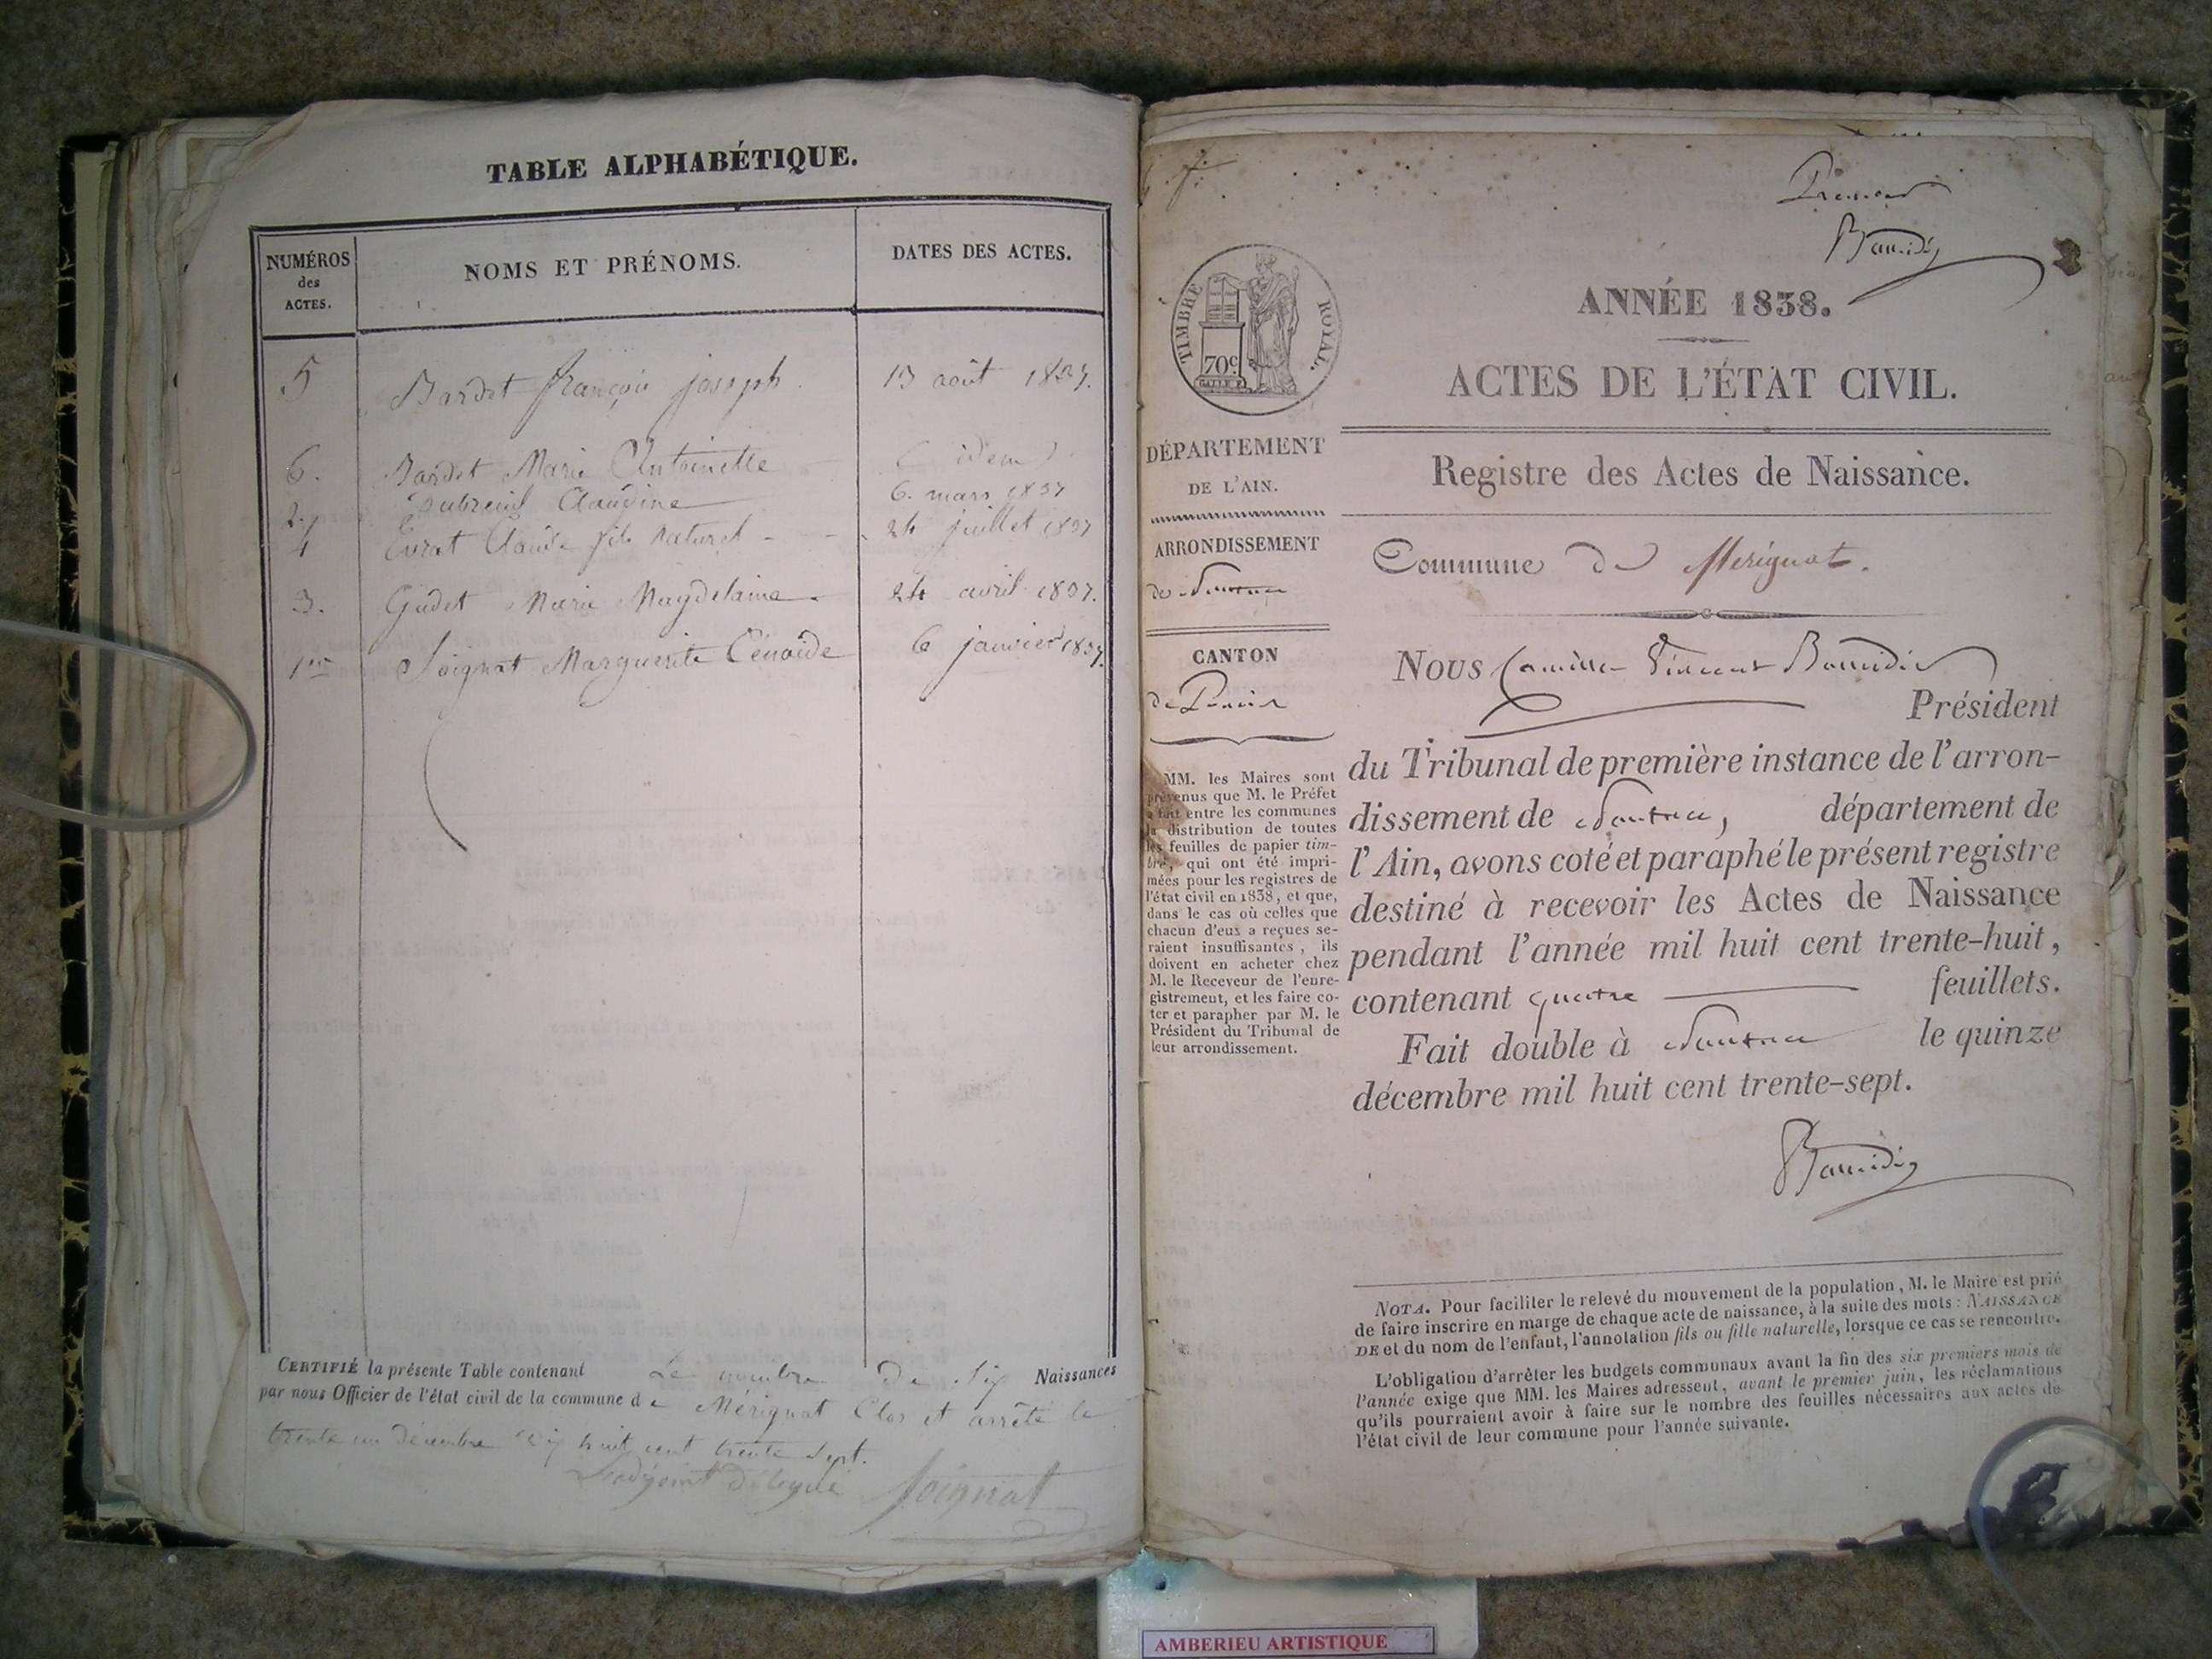 TABLE ALPHABÉTIQUE.
NUMÉROS
des
ACTES.
NOMS ET PRÉNOMS.
DATES DES ACTES.
5 Bardet françois joseph. 13 août 1837.
6. Bardet Marie Antoinette idem
2. Dubreuil Claudine 6. mars 1837
4 Curat Claude fils naturel 24 juillet 1837
3. Gudet Marie Magdelaine 24 avril 1837.
1er Soignat Marguerite Cénaïde 6 janvier 1837.
CERTIFIÉ la présente Table contenant Le nombre de six Naissances
par nous Officier de l'état civil de la commune de Mérignat Clos et arrêté le
trente un décembre huit cent trente sept.
L'adjoint délégué Soignat
Premier
TIMBRE ROYAL.
70c
ANNÉE 1838.
ACTES DE L'ÉTAT CIVIL.
Registre des Actes de Naissance.
Commune de Mérignat.
DÉPARTEMENT
DE L'AIN.
ARRONDISSEMENT
de Nantua
CANTON
de Poncin
MM. les Maires sont
prévenus que M. le Préfet
a fait entre les communes
la distribution de toutes
les feuilles de papier tim-
bré, qui ont été impri-
mées pour les registres de
l'état civil en 1838, et que,
dans le cas où celles que
chacun d'eux a reçues se-
raient insuffisantes, ils
doivent en acheter chez
M. le Receveur de l'enre-
gistrement, et les faire co-
ter et parapher par M. le
Président du Tribunal de
leur arrondissement.
Nous Camille Vincent
Président
du Tribunal de première instance de l'arron-
dissement de Nantua, département de
l'Ain, avons coté et paraphé le présent registre
destiné à recevoir les Actes de Naissance
pendant l'année mil huit cent trente-huit,
contenant quatre feuillets.
Fait double à Nantua le quinze
décembre mil huit cent trente-sept.
NOTA. Pour faciliter le relevé du mouvement de la population, M. le Maire est prié
de faire inscrire en marge de chaque acte de naissance, à la suite des mots : NAISSANCE
DE et du nom de l'enfant, l'annotation fils ou fille naturelle, lorsque ce cas se rencontre.
L'obligation d'arrêter les budgets communaux avant la fin des six premiers mois de
l'année exige que MM. les Maires adressent, avant le premier juin, les réclamations
qu'ils pourraient avoir à faire sur le nombre des feuilles nécessaires aux actes de
l'état civil de leur commune pour l'année suivante.
AMBERIEU ARTISTIQUE